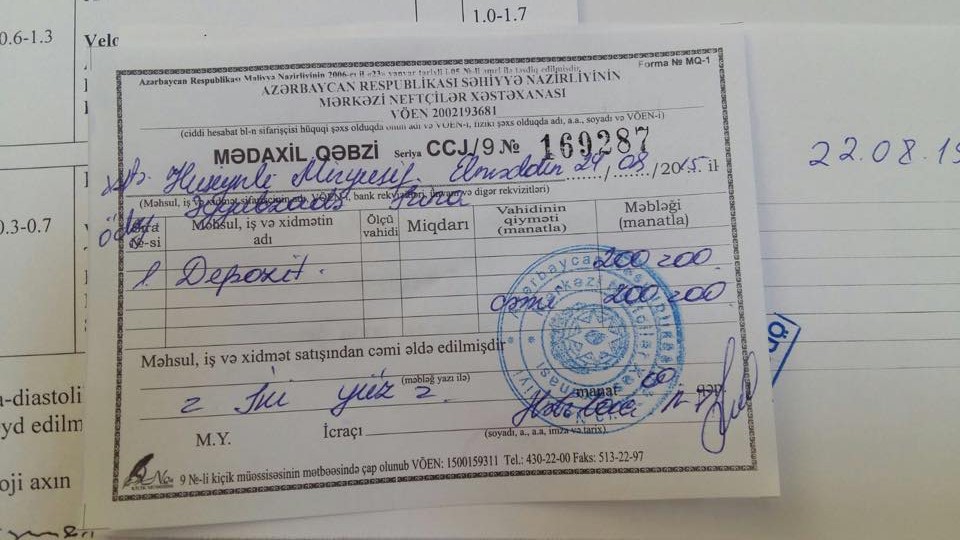 1.0-1.7
0.6-1.3
Velo
Azərbaycan Respublikası Maliyyə Nazirliyinin 2006-cı il «23» yanvar tarixli İ-05 №-li əmri ilə təsdiq edilmişdir.
Forma № MQ-1
AZƏRBAYCAN RESPUBLİKASI SƏHİYYƏ NAZİRLİYİNİN
MƏRKƏZİ NEFTÇİLƏR XƏSTƏXANASI
VÖEN 2002193681
(ciddi hesabat bl-n sifarişçisi hüquqi şəxs olduqda onun adı və VÖEN-i, fiziki şəxs olduqda adı, a.a., soyadı və VÖEN-i)
MƏDAXİL QƏBZİ Seriya CCJ/9 № 169287
22.08.15
Huseynli 24/08/2015 il
(Məhsul, iş və xidmət sifarişçinin adı, VÖEN-i, bank rekvizitləri, ünvanı və digər rekvizitləri)
0.3-0.7
Sıra №-si
Məhsul, iş və xidmətin adı
Ölçü vahidi
Miqdarı
Vahidinin qiyməti (manatla)
Məbləği (manatla)
1. Depozit. 200=00.
cəmi 200=00
Məhsul, iş və xidmət satışından cəmi əldə edilmişdir
(məbləğ yazı ilə)
= İki yüz = manat 00 qəp.
M.Y. İcraçı
(soyadı, a., a.a, imza və tarix)
9 №-li kiçik müəssisəsinin mətbəəsində çap olunub VÖEN: 1500159311 Tel.: 430-22-00 Faks: 513-22-97
a-diastoli
yd edilm
oji axın